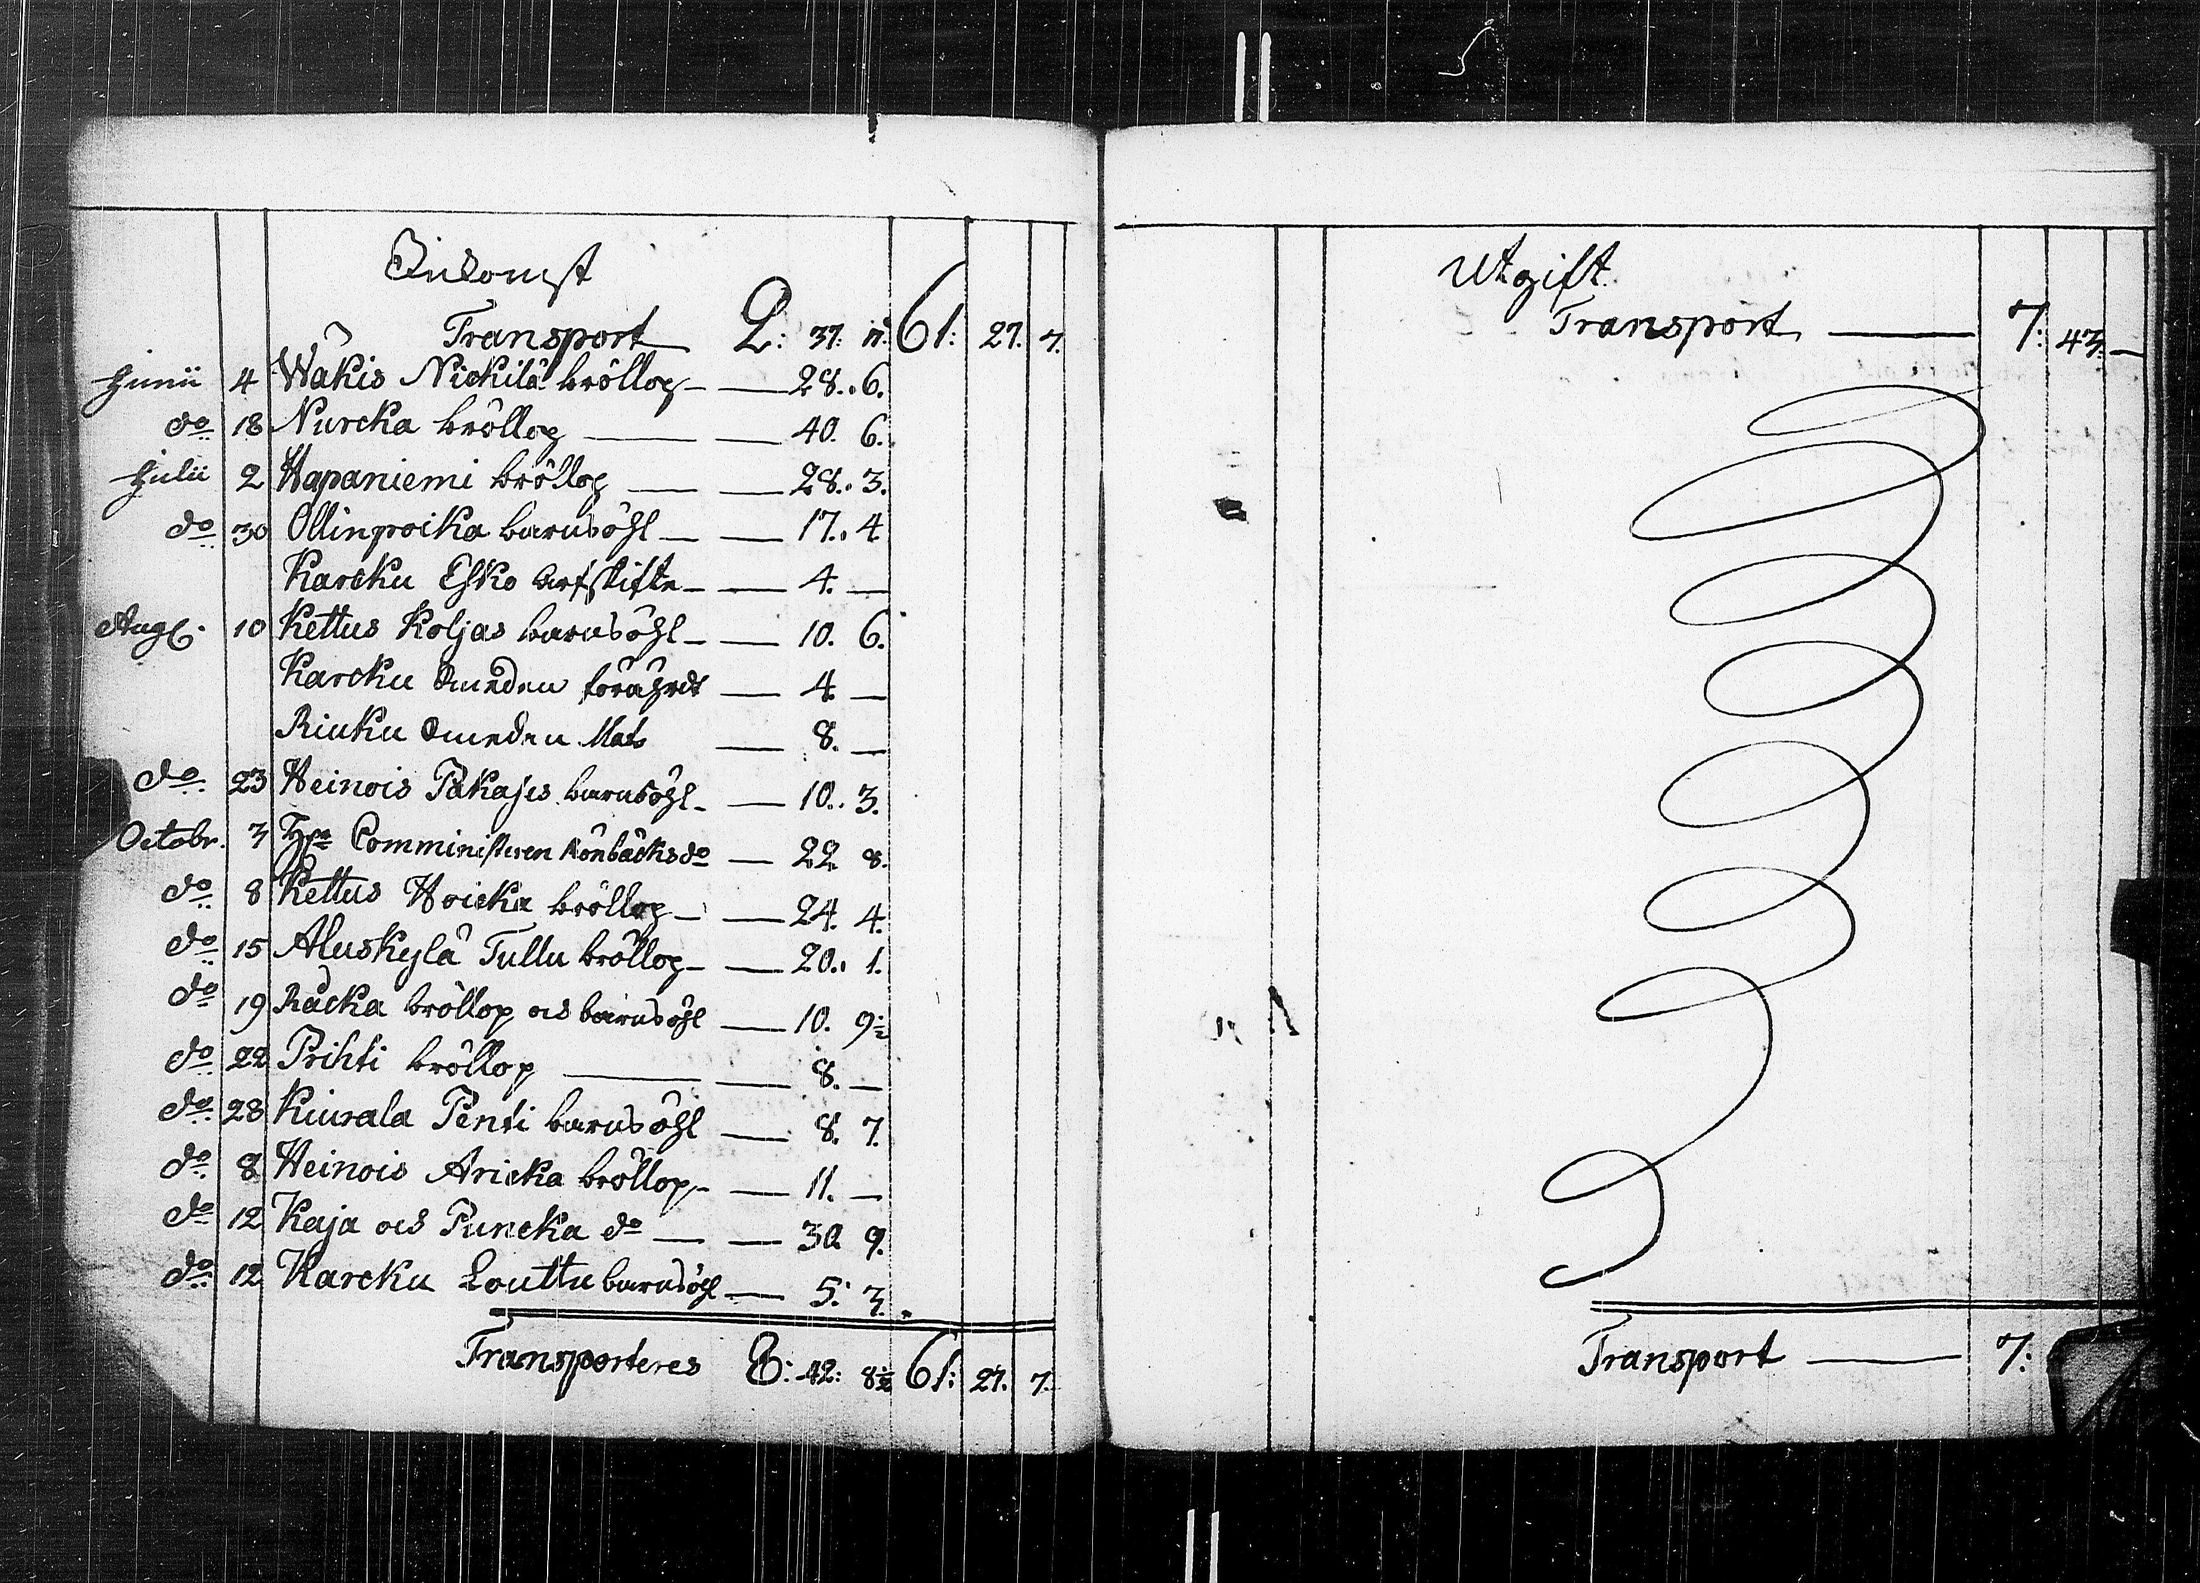 Inkomst
Transport 2: 37: 11. 61: 27. 7.
Junii 4 Wäkis Nickilä bröllop 28. 6.
do 18 Nurcka bröllop 40. 6.
Julii 2 Hapaniemi bröllop 28. 3.
do 30 Ollinpoika barnsöhl 17. 4
Karcku Esko arfskifte 4. —
Aug. 10 Kettus Koljas barnsöhl 10. 6.
Karcku Smeden förährdt 4 —
Riuku Smeden Mats 8. —
do 23 Heinois Pakajes barnsöhl 10. 3.
Octobr. 3 Hr Comministeren Rönbäcks do 22 8.
do 8 Kettus Hoicka bröllop 24. 4.
do 15 Aluskylä Tullu bröllop 20. 1.
do 19 Räcka bröllop och barnsöhl 10. 9½
do 22 Prihti bröllop 8. —
do 28 Kiurala Penti barnsöhl 8. 7.
do 8 Heinois Aricka bröllop 11. —
do 12 Keja och Puncka do 30 9.
do 12 Karcku Louttu barnsöhl 5. 3.
Transporteres 8: 42: 8½ 61: 27. 7.
Utgift.
Transport 7: 43. —
Transport 7: